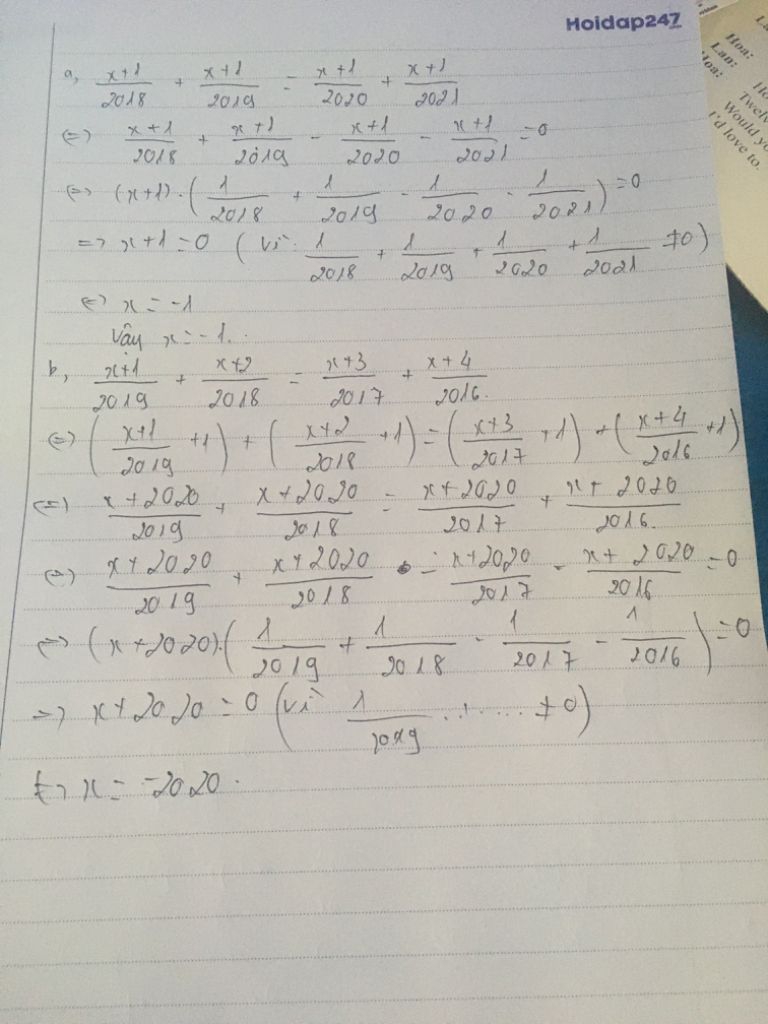 Hoidap247
a, \frac{x+1}{2018} + \frac{x+1}{2019} = \frac{x+1}{2020} + \frac{x+1}{2021}
(=) \frac{x+1}{2018} + \frac{x+1}{2019} - \frac{x+1}{2020} - \frac{x+1}{2021} = 0
(=) (x+1) \cdot (\frac{1}{2018} + \frac{1}{2019} - \frac{1}{2020} - \frac{1}{2021}) = 0
=> x+1 = 0 (vì: \frac{1}{2018} + \frac{1}{2019} + \frac{1}{2020} + \frac{1}{2021} ≠ 0)
(=) x = -1
Vậy x = -1.
b, \frac{x+1}{2019} + \frac{x+2}{2018} = \frac{x+3}{2017} + \frac{x+4}{2016}.
(=) (\frac{x+1}{2019} + 1) + (\frac{x+2}{2018} + 1) = (\frac{x+3}{2017} + 1) + (\frac{x+4}{2016} + 1)
(=) \frac{x+2020}{2019} + \frac{x+2020}{2018} = \frac{x+2020}{2017} + \frac{x+2020}{2016}.
(=) \frac{x+2020}{2019} + \frac{x+2020}{2018} - \frac{x+2020}{2017} - \frac{x+2020}{2016} = 0
(=) (x+2020).(\frac{1}{2019} + \frac{1}{2018} - \frac{1}{2017} - \frac{1}{2016}) = 0
=> x+2020 = 0 (vì \frac{1}{2019} ........ ≠ 0)
(=) x = -2020.
Hoa:
Lan:
Hoa:
Would
I'd love to.